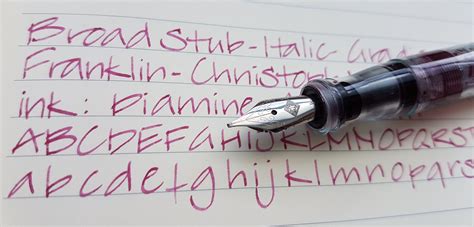 Broad Stub-Italic Grad
Franklin-Christoph
ink: Diamine
ABCDEFGHIJKLMNOPQRS
abcdefghijklmnopqrs